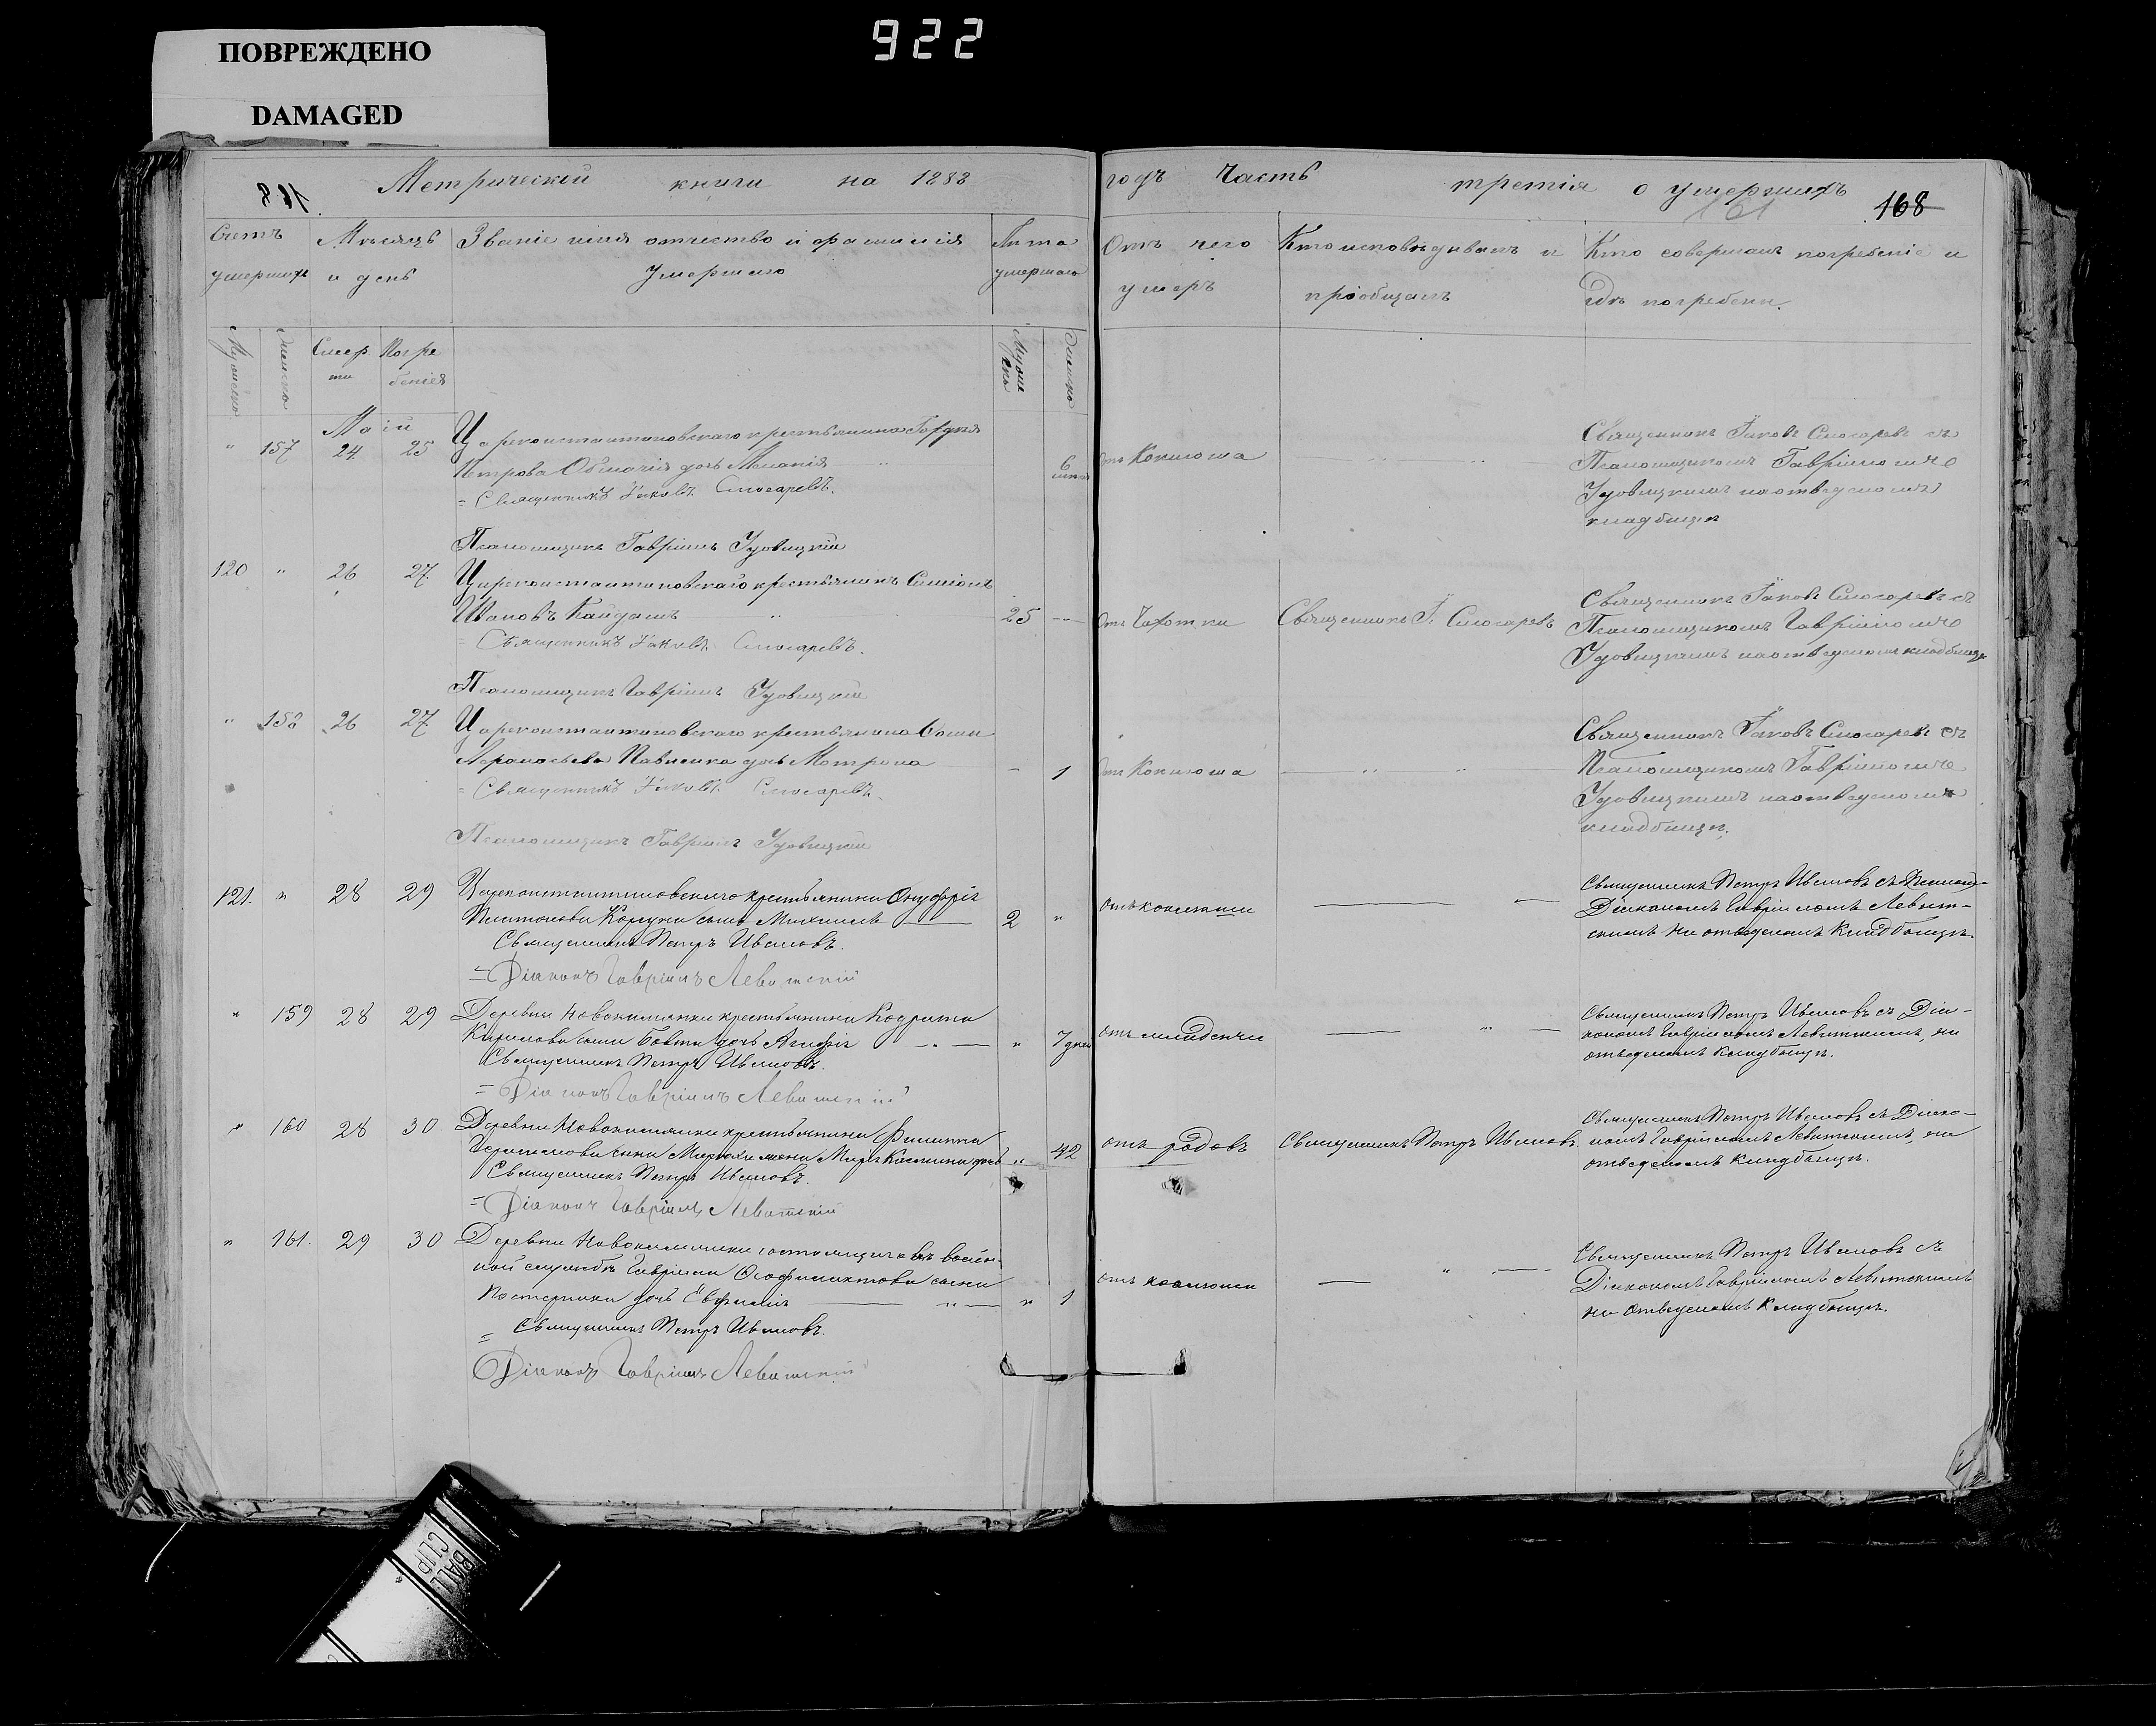 922
ПОВРЕЖДЕНО
DAMAGED
Метрической книги на 1888
годъ Часть третія о умершихъ
168
Счетъ умершихъ
Мѣсяцъ и день
Званіе имя отчество и фамилія умершаго
Лѣта умершаго
Отъ чего умеръ
Кто исповѣдывалъ и пріобщалъ
Кто совершалъ погребеніе и гдѣ погребенъ.
Мужеска
Женска
Смерти
Погребенія
Мужеска
Женска
Маій
" 157 24 25 Цареконстантиновскаго крестьянина Гордѣя
Петрова дочь Меланія 6
= Священникъ Іаковъ Слюсаревъ.
Псаломщикъ Гавріилъ Удовицкій
отъ Коклюша
Священникъ Іаковъ Слюсаревъ съ
Псаломщикомъ Гавріиломъ
Удовицкимъ на отведеномъ
кладбищѣ
120 " 26 27. Цареконстантиновскаго крестьянинъ Симіонъ
Ивановъ Кайдашъ 25
= Священникъ Іаковъ Слюсаревъ.
Псаломщикъ Гавріилъ Удовицкій
отъ Чахотки
Священникъ І. Слюсаревъ
Священникъ Іаковъ Слюсаревъ съ
Псаломщикомъ Гавріиломъ
Удовицкимъ на отведеномъ кладбищѣ
" 158 26 27 Цареконстантиновскаго крестьянина Фомы
Афанасьева Павленка дочь Мотрона – 1
= Священникъ Іаковъ Слюсаревъ.
Псаломщикъ Гавріилъ Удовицкій
отъ Коклюша
Священникъ Іаковъ Слюсаревъ съ
Псаломщикомъ Гавріиломъ
Удовицкимъ на отведеномъ
кладбищѣ.
121. " 28 29 Цареконстантиновскаго крестьянина Онуфрія
Платонова сынъ Михаилъ 2 "
Священникъ Петръ Ивановъ.
= Діаконъ Гавріилъ Левитскій
отъ коклюша
Священникъ Петръ Ивановъ съ
Діакономъ Гавріиломъ Левит-
скимъ на отведеномъ кладбищѣ.
" 159 28 29 Деревни Новокамянки крестьянина Кодрата
Кирилова сына дочь Агафія " 7 дней
Священникъ Петръ Ивановъ.
= Діаконъ Гавріилъ Левитскій
отъ младенч
Священникъ Петръ Ивановъ съ Діа-
кономъ Гавріиломъ Левитскимъ, на
отведеномъ кладбищѣ.
" 160 28 30 Деревни Новокамянки крестьянина Филиппа
Герасимова сына жена Марія дочь " 42
Священникъ Петръ Ивановъ.
= Діаконъ Гавріилъ Левитскій
отъ родовъ
Священникъ Петръ Ивановъ
Священникъ Петръ Ивановъ съ Діако-
номъ Гавріиломъ Левитскимъ, на
отведеномъ кладбищѣ.
" 161. 29 30 Деревни Новокамянки состоящаго въ воен-
ной службѣ Гавріила Феофилактова сына
дочь Евфимія " 1
= Священникъ Петръ Ивановъ.
Діаконъ Гавріилъ Левитскій
отъ коклюша
Священникъ Петръ Ивановъ съ
Діакономъ Гавріиломъ Левитскимъ
на отведеномъ кладбищѣ.